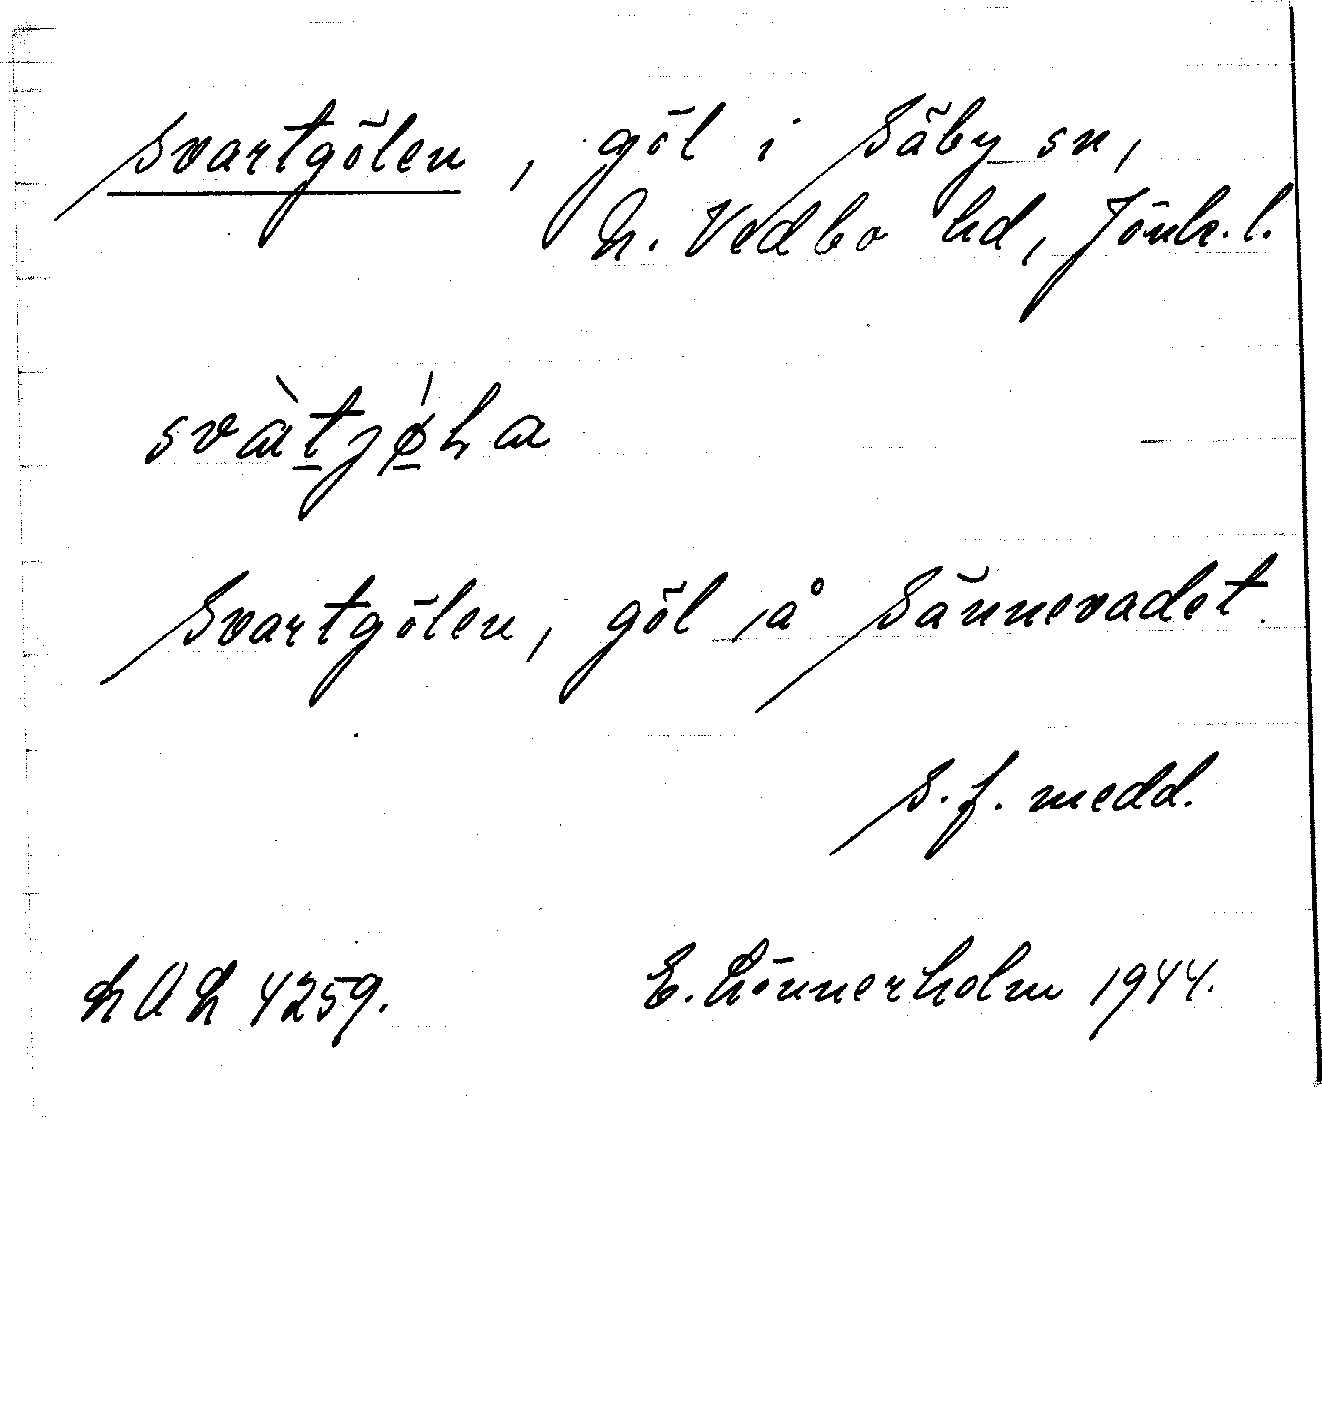 Svartgölen, göl i Säby sn,
N. Vedbo hd, Jönk. l.
svàtjǿla
Svartgölen, göl å Sännevadet.
S. f. medd.
LAL 4259. E. Lönnerholm 1944.